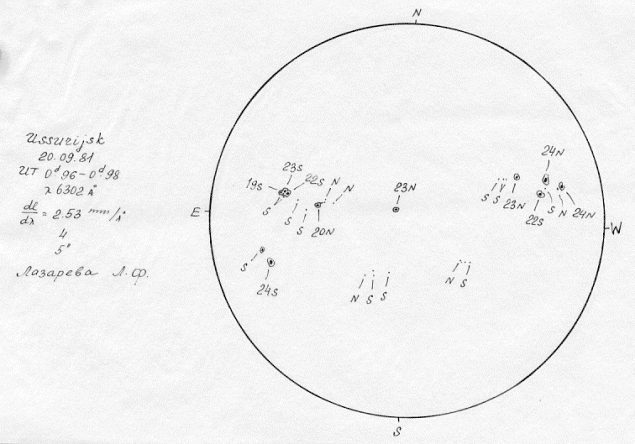 N
Ussurijsk
20.09.81
UT 0ᵈ96-0ᵈ98
λ 6302 Å
dl/dλ = 2.53 mm/Å
4
5"
Лазарева Л.Ф.
24N
23S
19S 22S N N
S S S 20N
23N
S S 23N 22S S N 24N
E
W
S 24S
N S S
N S
S